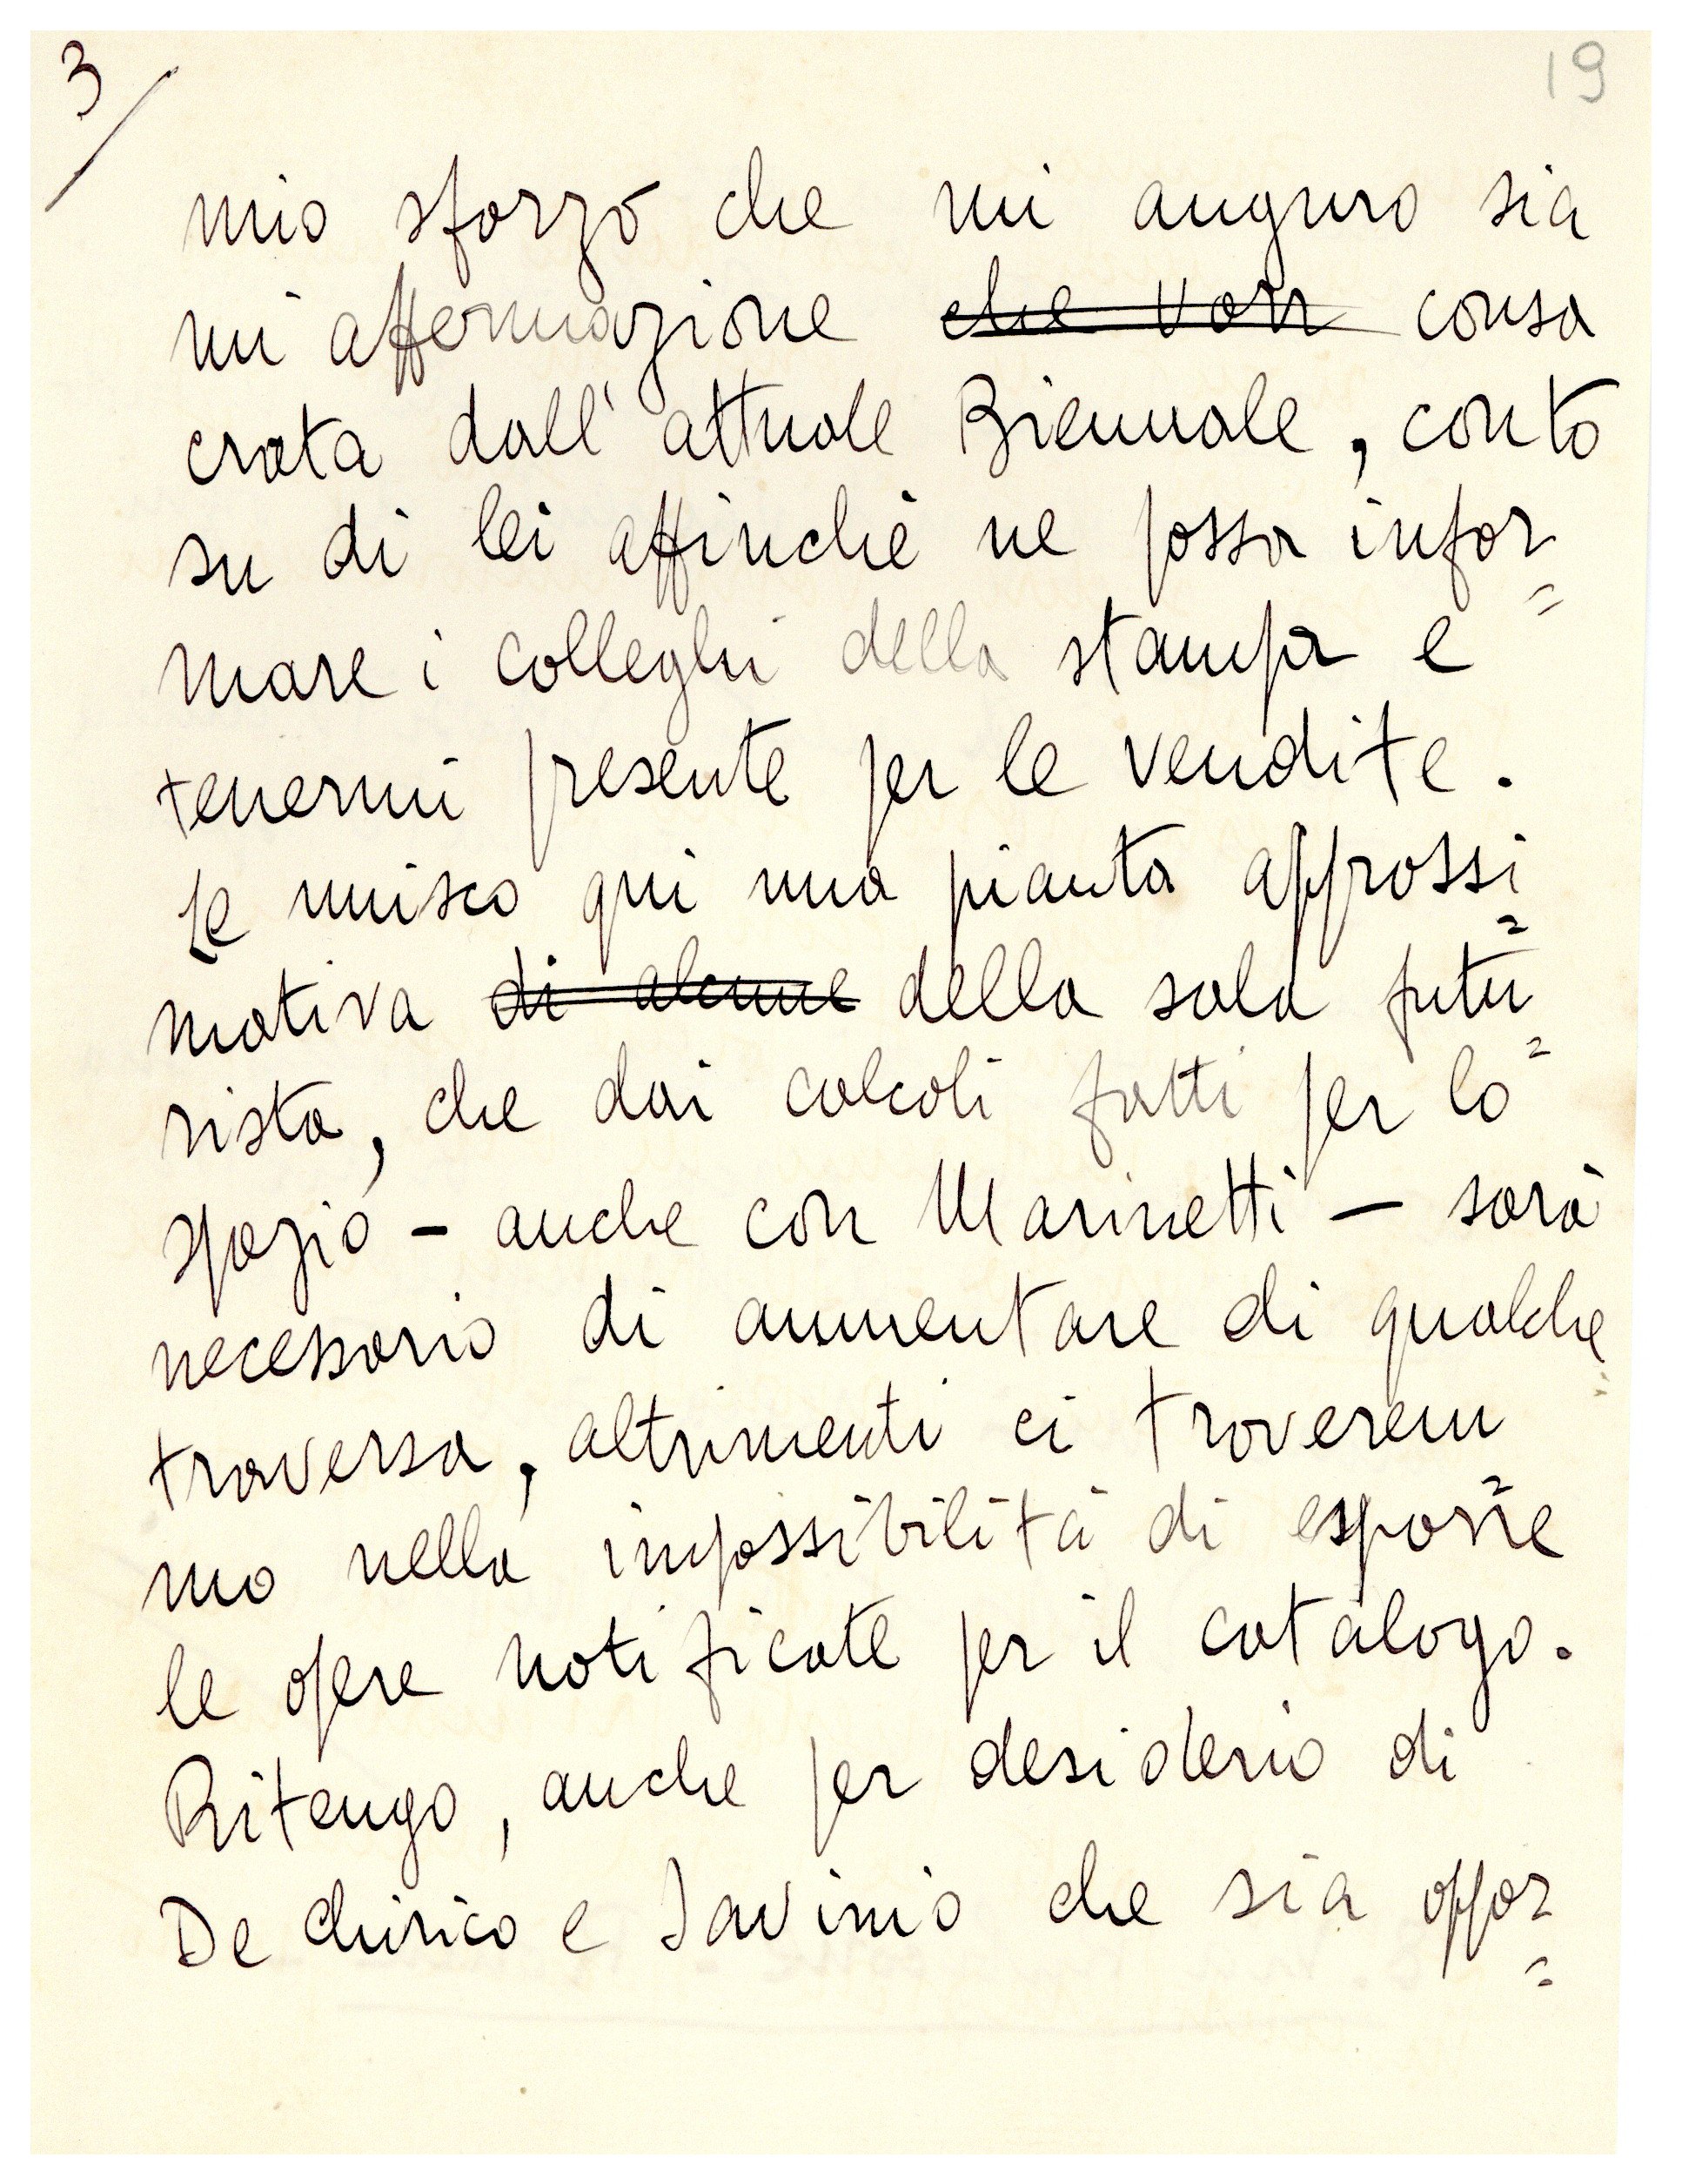 3/ 19
mio sforzo che mi auguro sia
un affermazione che vorr consa
crata dall'attuale Biennale, conto
su di lei affinchè ne possa infor=
mare i colleghi della stampa e
tenermi presente per le vendite.
Le unisco qui una pianta approssi=
mativa di alcune della sala futu=
rista, che dai calcoli fatti per lo
spazio - anche con Marinetti - sarà
necessario di aumentare di qualche
traversa, altrimenti ci troverem=
mo nella impossibilità di esporre
le opere notificate per il catalogo.
Ritengo, anche per desiderio di
De Chirico e Savinio che sia oppor=